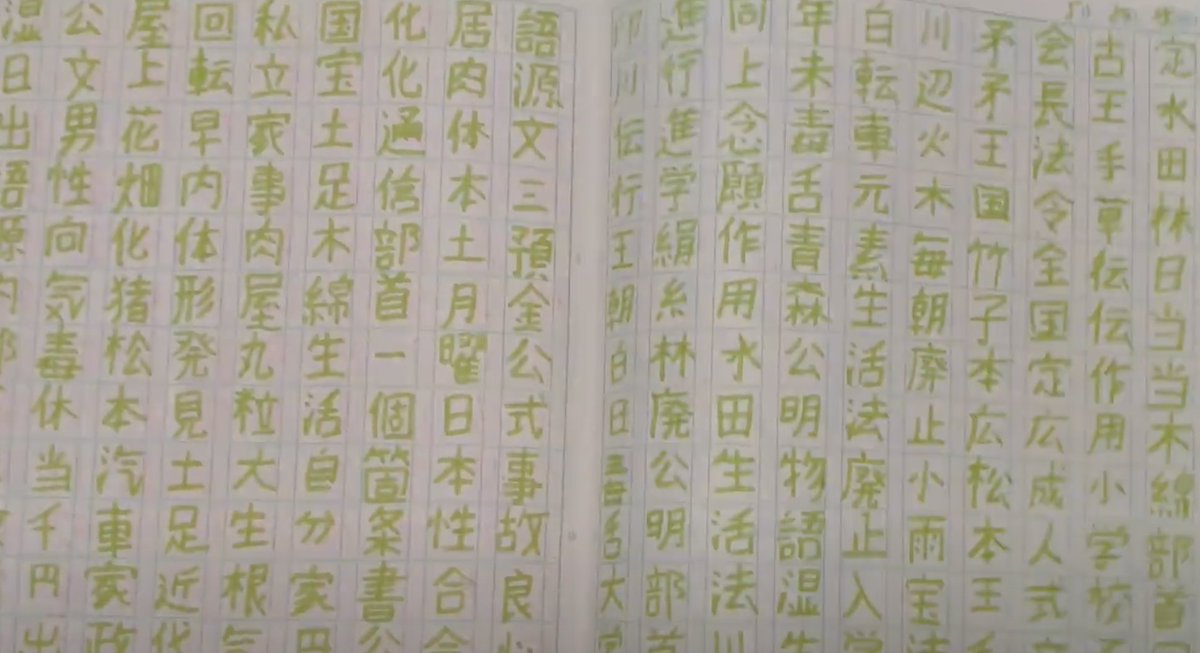 定水田林日当当木綿部首
古王手草伝伝作用小学校
会長法令全国定広成人式
矛矛王国竹子本広松本王
川辺火木毎朝廃止小雨宝法
白転車元素生活法廃止入学
年未毒舌青森公明物語湿生
同上念願作用水田生活法川
進行進学絹糸林廃公明部首
川伝行王朝白日毒舌大
語源文三預金公式事故良心
居肉休本土月曜日本性合合
化化通信部首一個箇条書公
国宝土足木綿生活自分家円
私立家事肉屋丸粒大生根気
回転早内体形発見土足近代
屋上花畑化猪松本汽車家政
公文男性向気毒休当千円出
湿日出語源内部